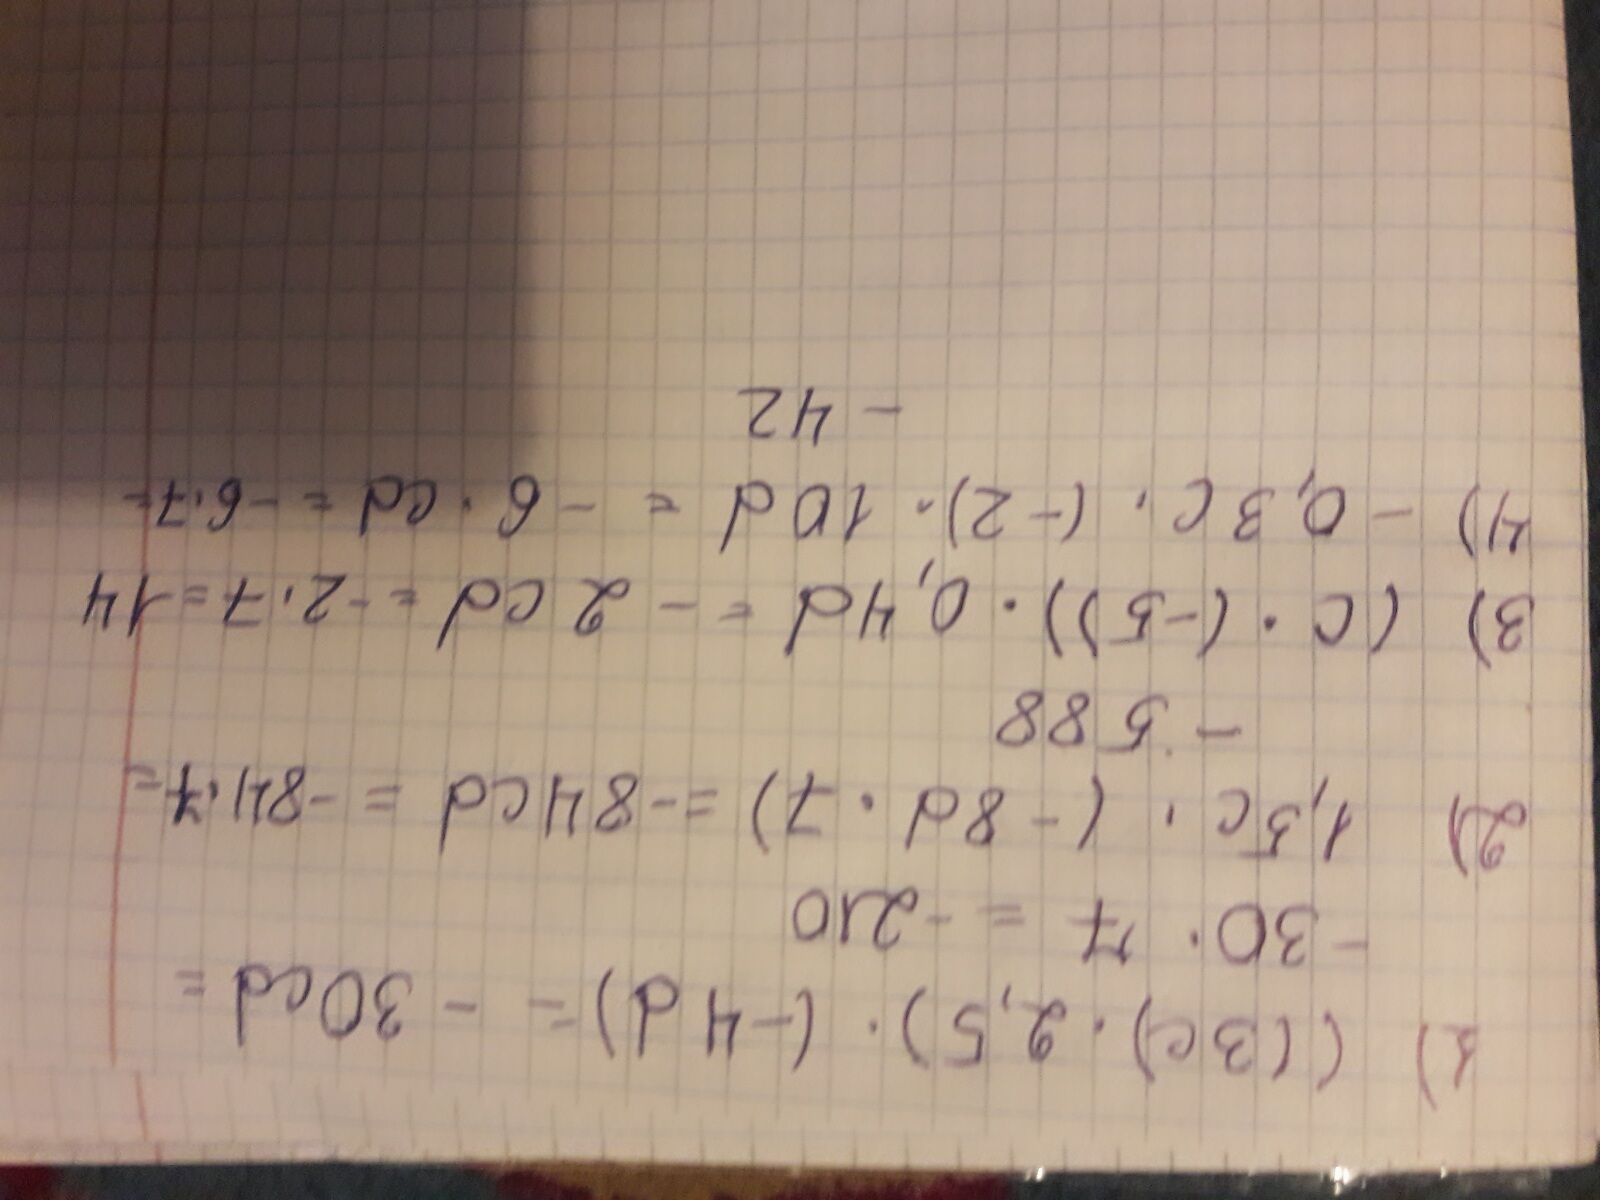 1) ((3c) · 2,5) · (-4d) = - 30cd =
- 30 · 7 = - 210
2) 1,5c · (- 8d · 7) = - 84cd = - 84 · 7 =
- 588
3) (c · (-5)) · 0,4d = - 2cd = - 2 · 7 = 14
4) - 0,3c · (-2) · 10d = - 6 · cd = - 6 · 7 =
- 42